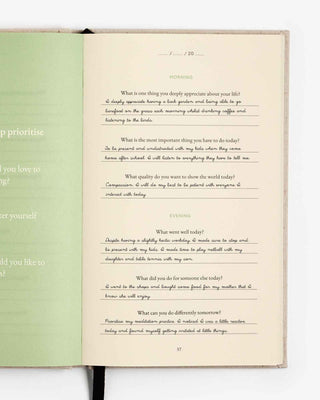 p prioritise
d you love to
ng?
ter yourself
uld you like to
n?
..... / ..... / 20 .....
MORNING
What is one thing you deeply appreciate about your life?
I deeply appreciate having a back garden and being able to go
barefoot on the grass each morning whilst drinking coffee and
listening to the birds.
What is the most important thing you have to do today?
To be present and undistracted with my kids when they come
home after school. I will listen to everything they have to tell me.
What quality do you want to show the world today?
Compassion. I will do my best to be patient with everyone I
interact with today.
EVENING
What went well today?
Despite having a slightly hectic workday, I made sure to stop and
be present with my kids. I made time to play netball with my
daughter and table tennis with my son.
What did you do for someone else today?
I went to the shops and bought some food for my mother that I
know she will enjoy.
What can you do differently tomorrow?
Prioritise my meditation practice. I noticed I was a little reactive
today and found myself getting irritated at little things.